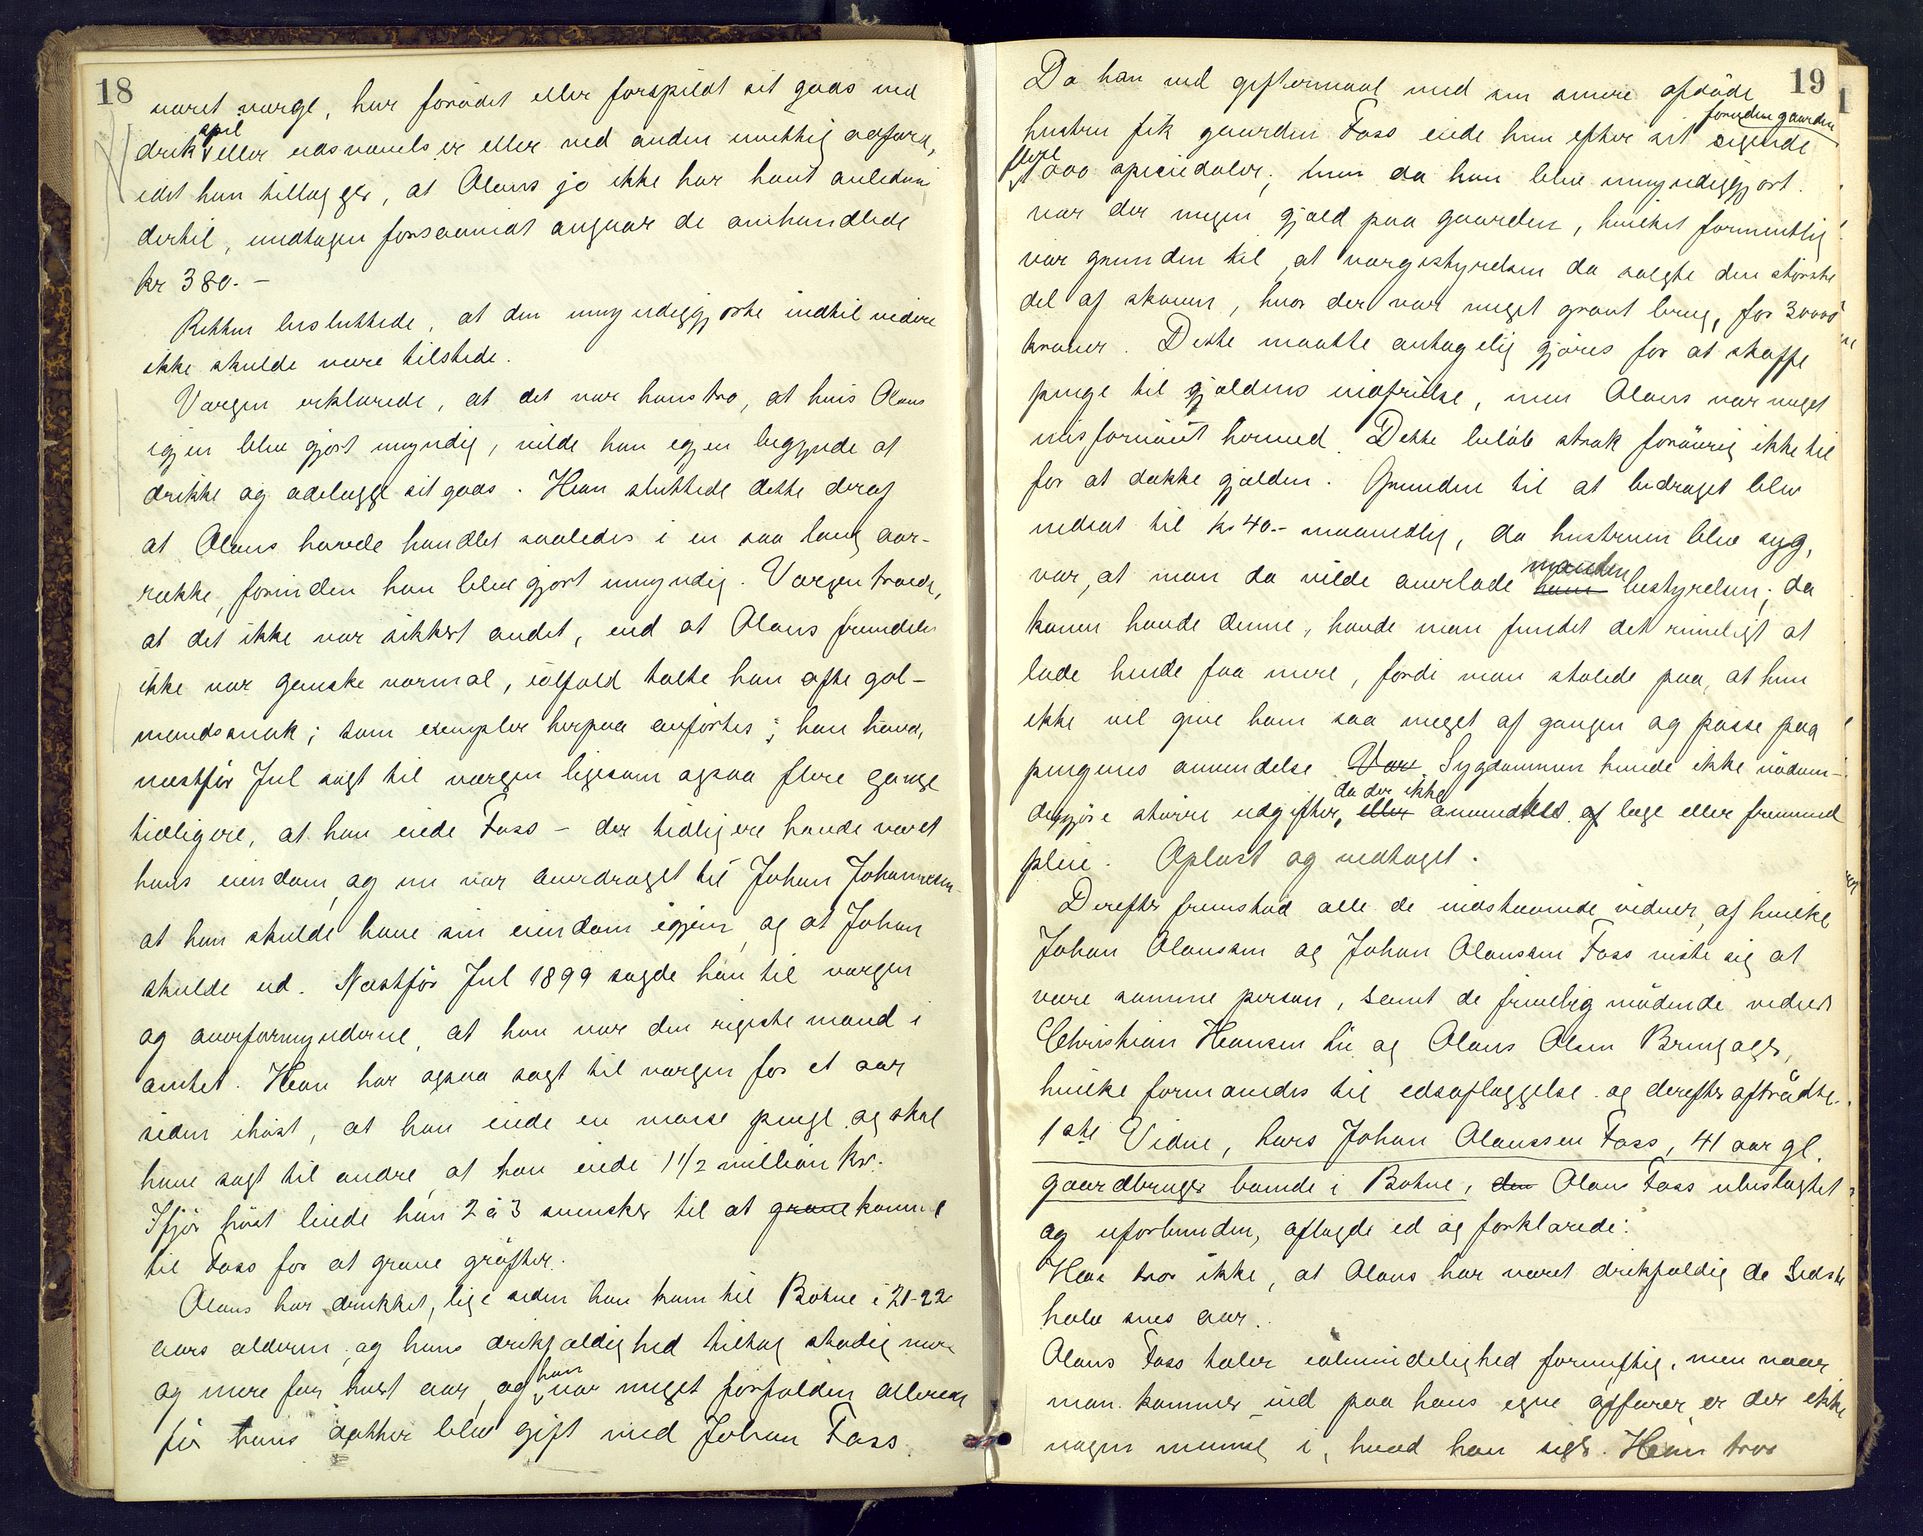 18
været værge, har forødet eller forspildt sit gods ved
drik, spil eller udsvævelser eller ved anden unyttig adfærd,
idet han tillægger, at Olaus jo ikke har havt anledning
dertil, undtagen forsaavidt angaar de omhandlede
kr 380.-
Retten besluttede, at den umyndiggjorte indtil videre
ikke skulde være tilstede.
Værgen erklærede, at det var hans tro, at hvis Olaus
igjen blev gjort myndig, vilde han igjen begynde at
drikke og ødelægge sit gods. Han sluttede dette deraf
at Olaus havde handlet saaledes i en saa lang aar-
række, forinden han blev gjort umyndig. Værgen troede,
at det ikke var sikkert andet, end at Olaus fremdeles
ikke var ganske normal, ialfald talte han ofte gal-
mandssnak; som exempler herpaa anførtes: han havde
næstfør Jul sagt til værgen ligesom ogsaa flere gange
tidligere, at han eiede Foss - der tidligere havde været
hans eiendom, og nu var overdraget til Johan Johannesen
at han skulde have sin eiendom igjen, og at Johan
skulde ud. Næstfør Jul 1899 sagde han til værgen
og overformynderne, at han var den rigeste mand i
amtet. Han har ogsaa sagt til værgen for et aar
siden ihøst, at han eiede en masse penge og skal
have sagt til andre, at han eiede 1 1/2 million kr.
Ifjør høst leiede han 2 à 3 svensker til at grave komme
til Foss for at grave grøfter.
Olaus har drukket, lige siden han kom til Botne i 21-22
aars alderen, og hans drikfældighed tiltog stadig mere
og mere for hvert aar, og han var meget forfalden allerede
før hans datter blev gift med Johan Foss.
19
Da han ved giftermaal med sin senere afdøde
hustru fik gaarden Foss eiede hun efter sit sigende foruden gaarden
flere 1000 speciedaler; men da han blev umyndiggjort.
var der megen gjæld paa gaarden, hvilket formentlig
var grunden til, at værgestyrelsen da solgte den største
del af skoven, hvor der var meget grovt brug, for 30000
kroner. Dette maatte antagelig gjøres for at skaffe
penge til gjældens indfrielse, men Olaus var meget
misfornøiet hermed. Dette beløb strak forøvrig ikke til
for at dække gjælden. Grunden til at bidraget blev
nedsat til kr 40.- maanedlig, da hustruen blev syg,
var, at man da vilde overlade manden bestyrelsen; da
konen havde denne, havde man fundet det rimeligt at
lade hende faa mere, fordi man stolede paa, at hun
ikke vil give ham saa meget af gangen og passe paa
pengenes anvendelse. Var Sygdommen kunde ikke nødven-
diggjøre større udgifter, eller da der ikke anvendtes af læge eller fremmed
pleie. Oplæst og vedtaget.
Derefter fremstod alle de indstævnede vidner, af hvilke
Johan Olaussen og Johan Olaussen Foss viste sig at
være samme person, samt de frivillig mødende vidner
Christian Hansen Lie og Olaus Olsen Bringager,
hvilke formanedes til edsaflæggelse og derefter aftrådte.
1ste Vidne, Lars Johan Olaussen Foss, 41 aar gl.
gaardbruger boende i Botne, den Olaus Foss ubeslægtet
og uforbunden, aflagde ed og forklarede:
Han tror ikke, at Olaus har været drikfældig de sidste
halv snes aar.
Olaus Foss taler ialmindelighed fornuftig, men naar
man kommer ind paa hans egne affærer er der ikke
nogen mening i, hvad han siger. Han tror